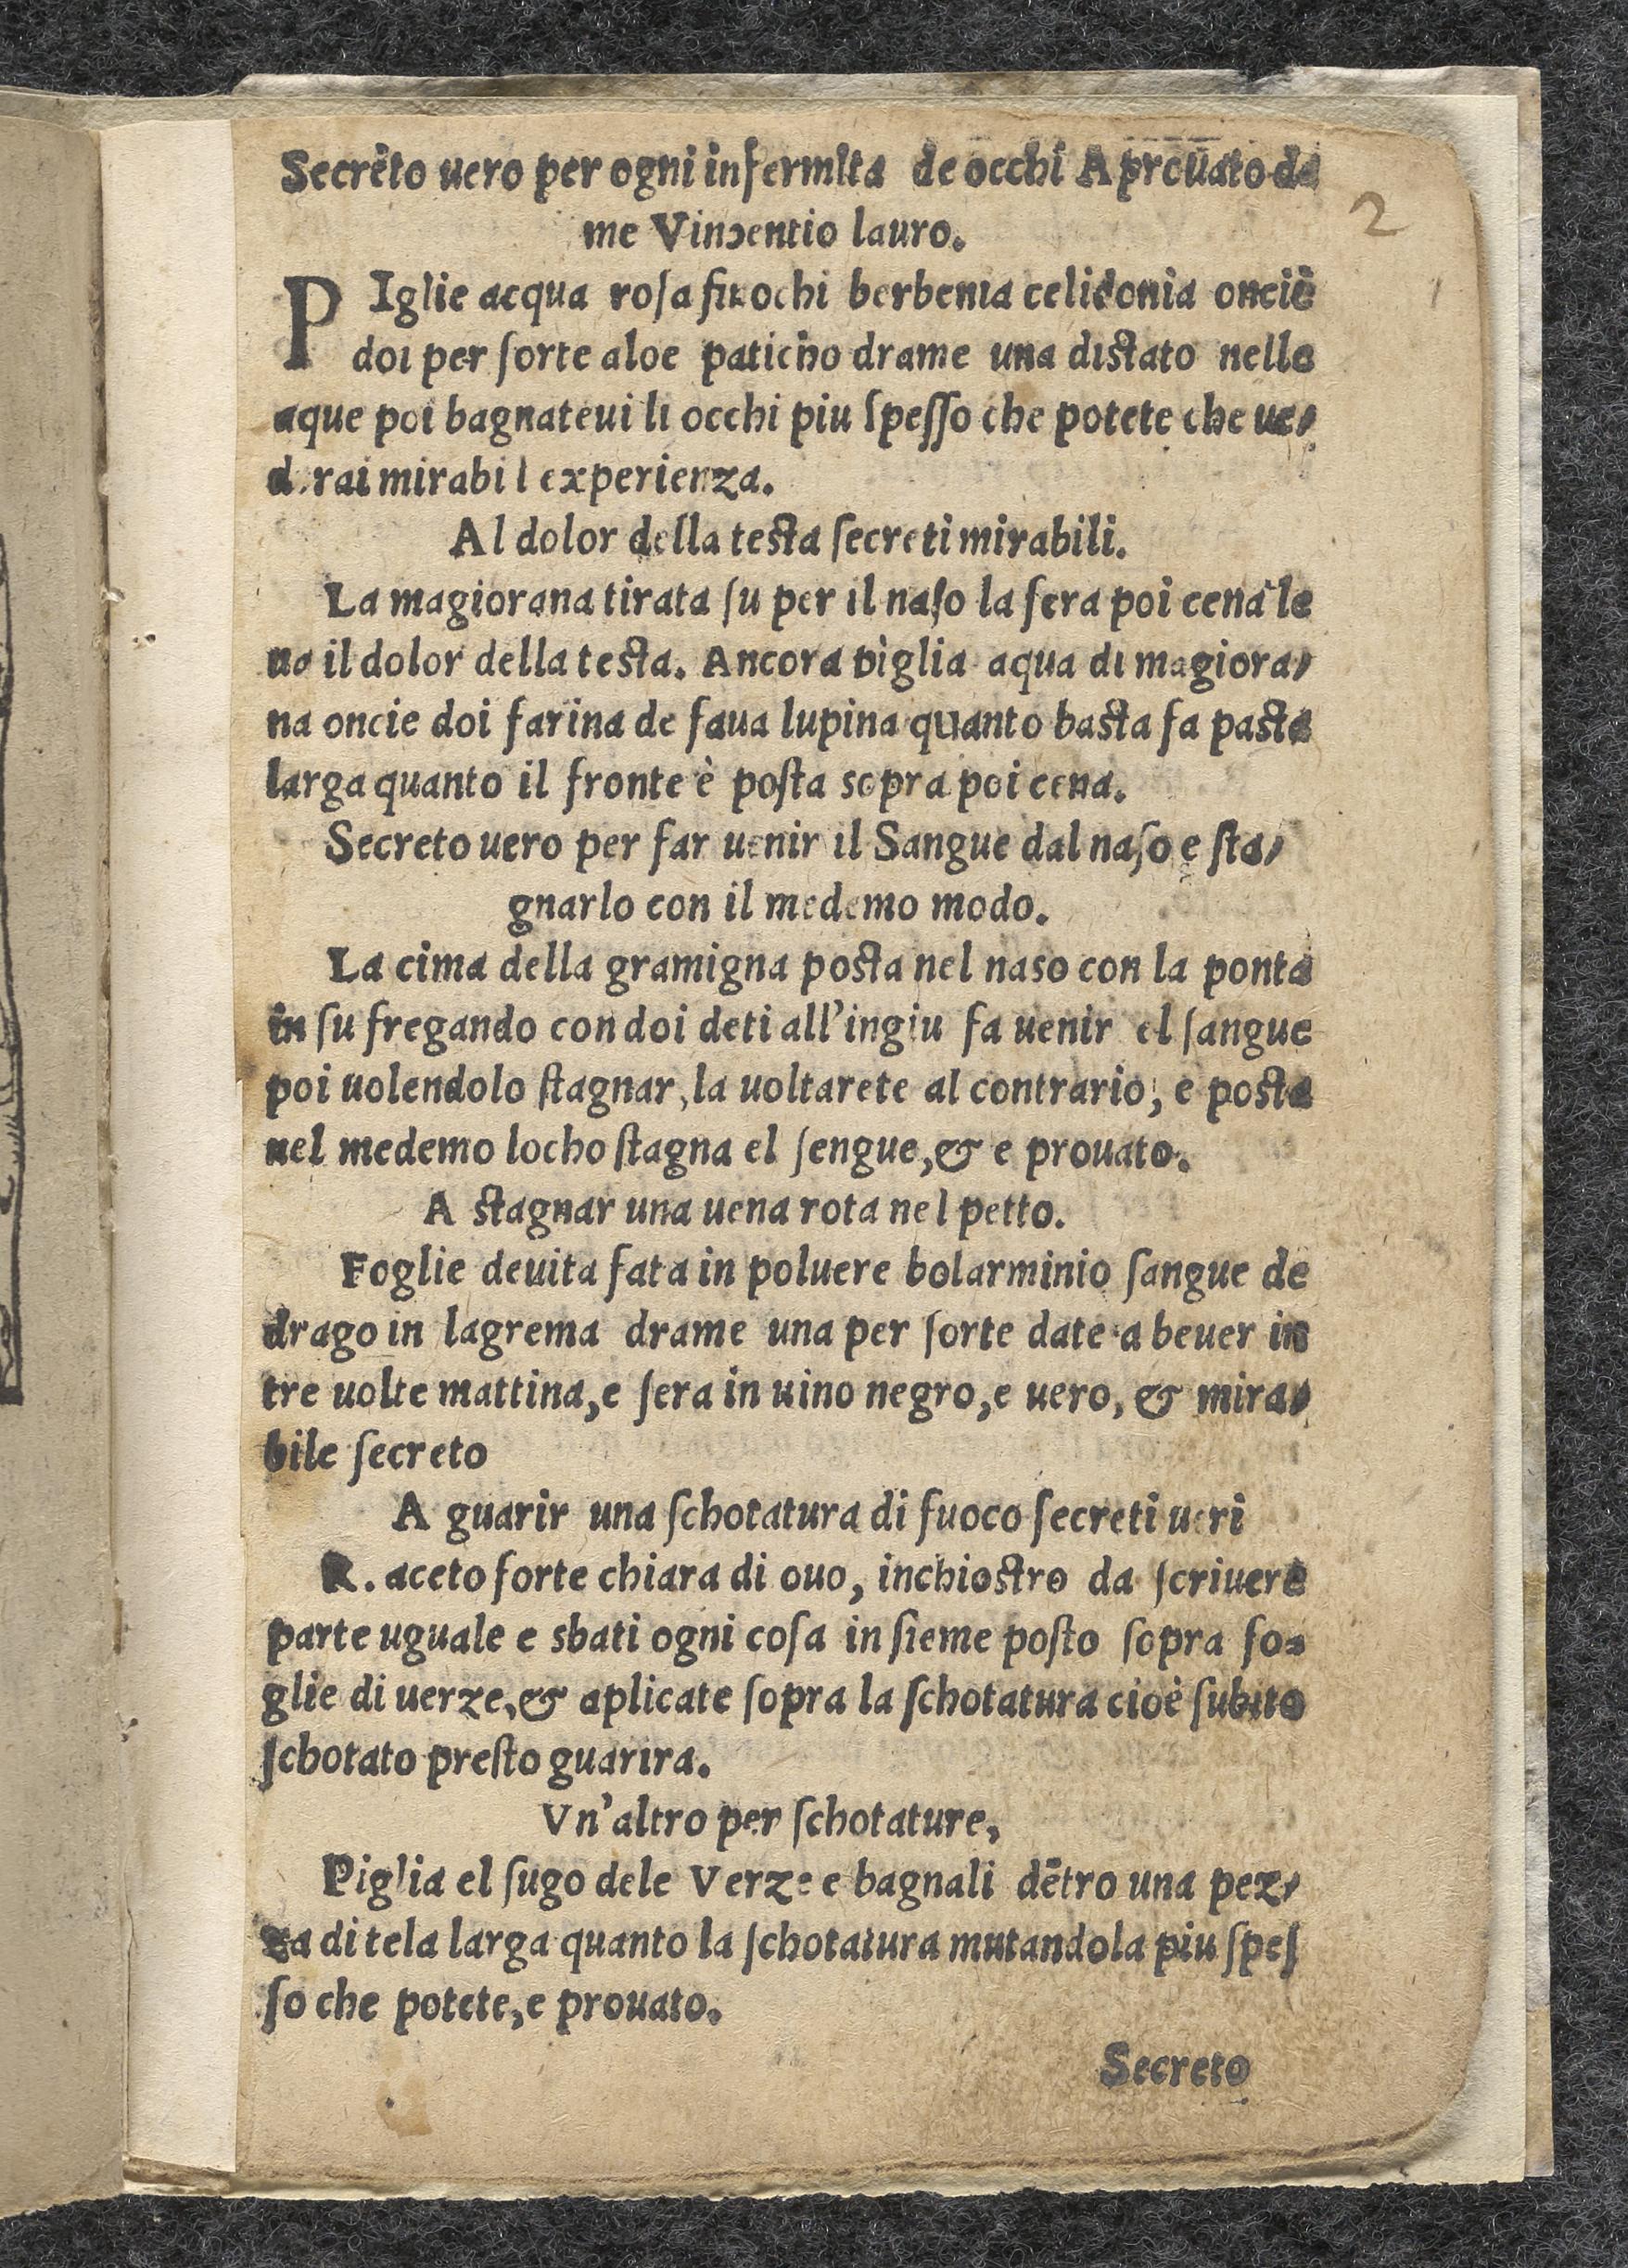 Secreto uero per ogni infermita de occhi Aprouato da
2
me Vincentio lauro.
PIglie acqua rosa finochi berbena celidonia oncie
doi per sorte aloe paticho drame una distato nelle
aque poi bagnateui li occhi piu spesso che potete che ue-
derai mirabil experienza.
Al dolor della testa secreti mirabili.
La magiorana tirata su per il naso la sera poi cena le
ua il dolor della testa. Ancora piglia aqua di magiora-
na oncie doi farina de faua lupina quanto basta fa pasta
larga quanto il fronte è posta sopra poi cena.
Secreto uero per far uenir il Sangue dal naso e sta-
gnarlo con il medemo modo.
La cima della gramigna posta nel naso con la ponta
in su fregando con doi deti all'ingiu fa uenir el sangue
poi uolendolo stagnar, la uoltarete al contrario, e posta
nel medemo locho stagna el sengue, & e prouato.
A stagnar una uena rota nel petto.
Foglie deuita fata in poluere bolarminio sangue de
drago in lagrema drame una per sorte date a beuer in
tre uolte mattina, e sera in uino negro, e uero, & mira-
bile secreto
A guarir una schotatura di fuoco secreti ueri
R. aceto forte chiara di ouo, inchiostro da scriuere
parte uguale e sbati ogni cosa insieme posto sopra fo-
glie di uerze, & aplicate sopra la schotatura cioè subito
schotato presto guarira.
Vn'altro per schotature,
Piglia el sugo dele Verze e bagnali dētro una pez-
za di tela larga quanto la schotatura mutandola piu spes
so che potete, e prouato.
Secreto